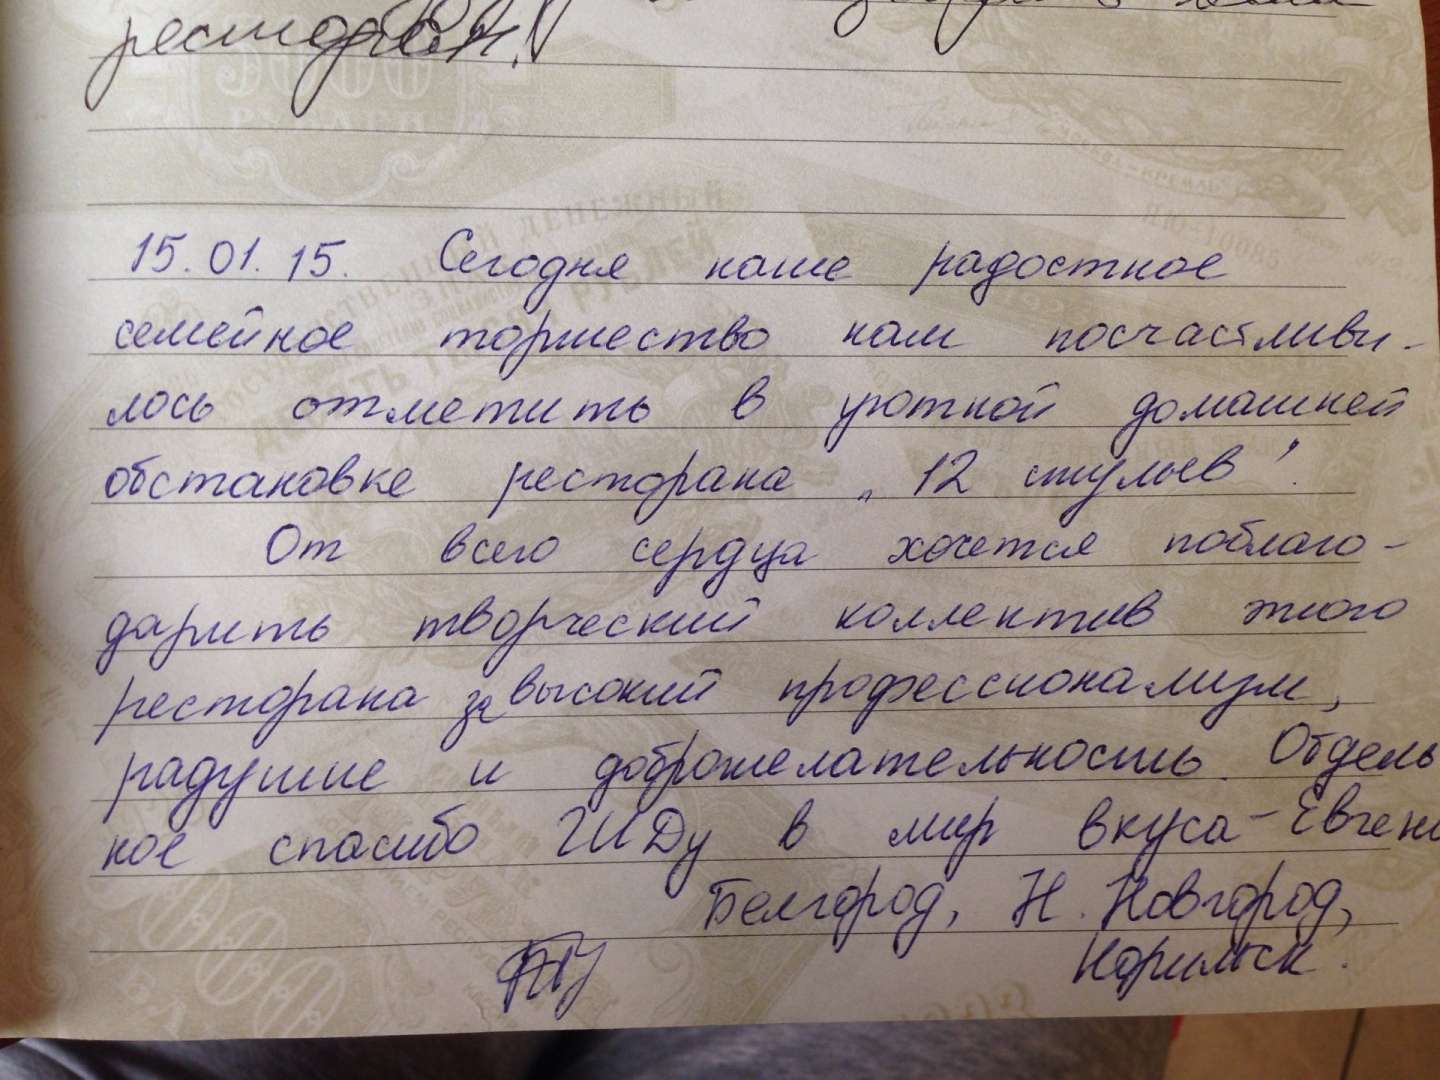 ресторан!
15.01.15. Сегодня наше радостное
семейное торжество нам посчастливи-
лось отметить в уютной домашней
обстановке ресторана „12 стульев".
От всего сердца хочется поблаго-
дарить творческий коллектив этого
ресторана за высокий профессионализм,
радушие и доброжелательность. Отдель
ное спасибо ГИДу в мир вкуса - Евгени
Белгород, Н. Новгород,
Норильск.